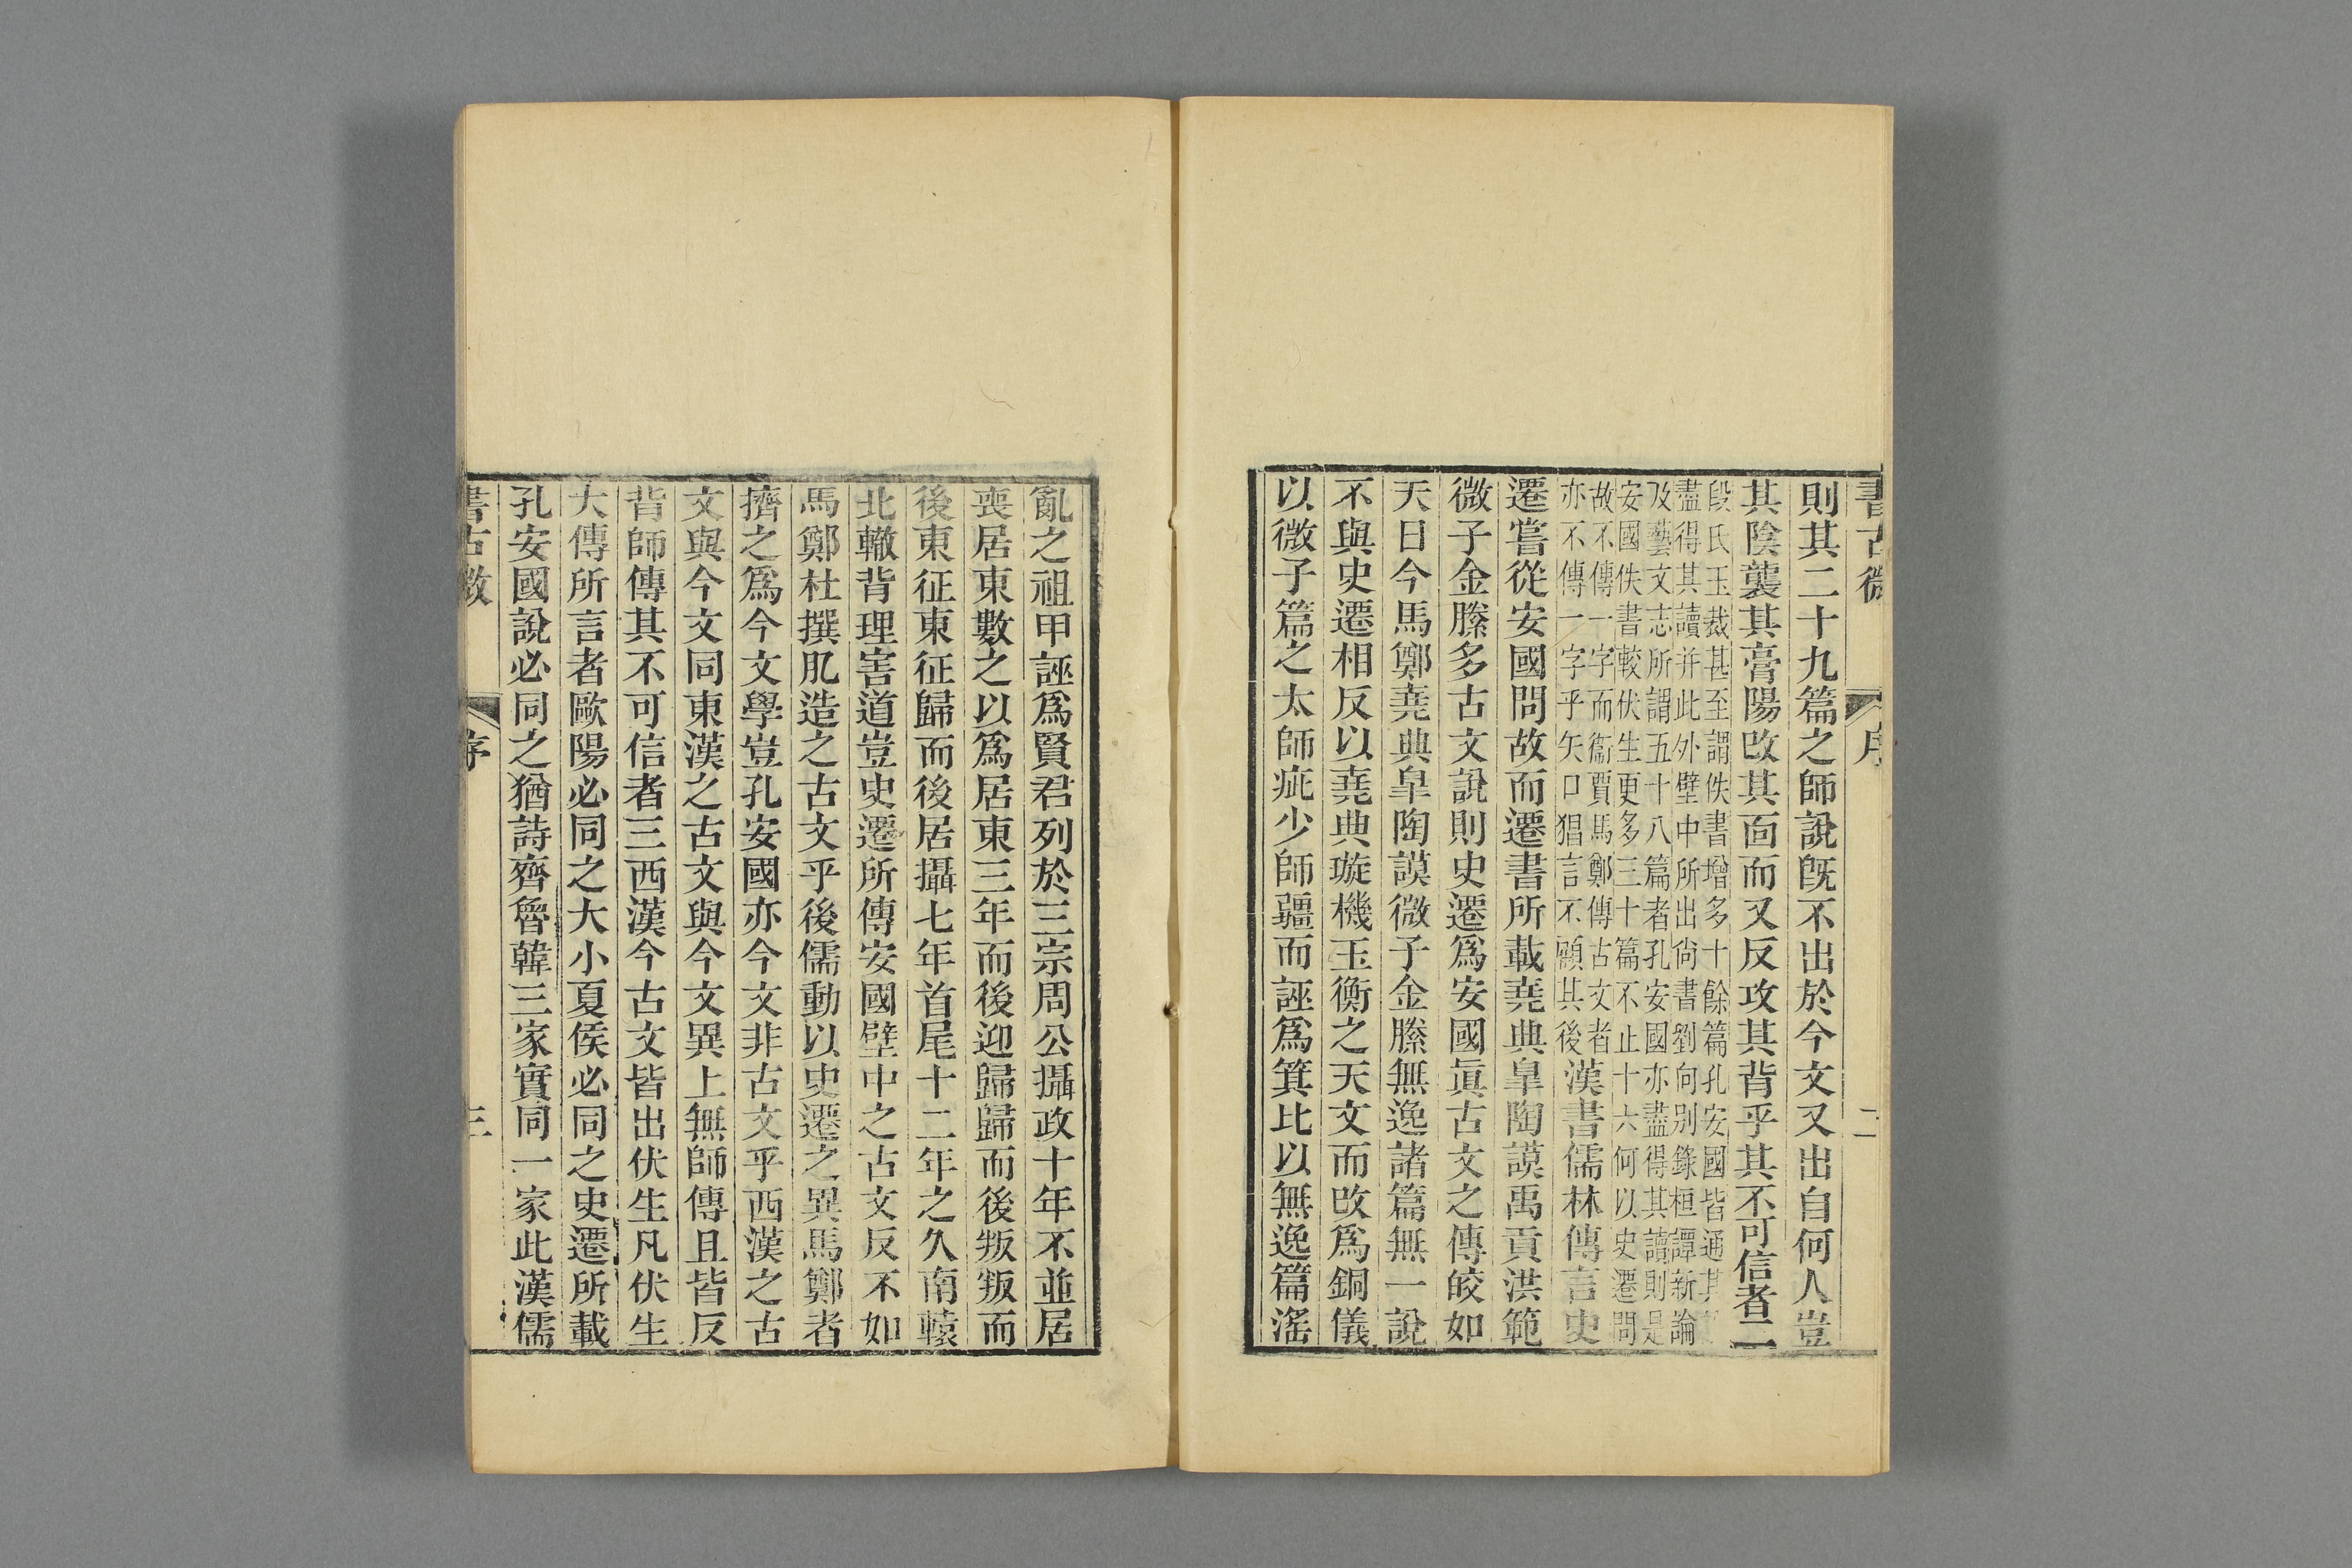 書古微
序
二
則其二十九篇之師說旣不出於今文又出自何人豈
其陰襲其膏陽改其面而又反攻其背乎其不可信者二
段氏玉裁甚至謂佚書增多十餘篇孔安國皆通其
盡得其讀并此外壁中所出尙書劉向別錄桓譚新論
及藝文志所謂五十八篇者孔安國亦盡得其讀則是
安國佚書較伏生更多三十篇不止十六何以史遷問
故不傳一字而衞賈馬鄭傳古文者
亦不傳一字乎矢口猖言不顧其後漢書儒林傳言史
遷嘗從安國問故而遷書所載堯典臯陶謨禹貢洪範
微子金縢多古文說則史遷爲安國眞古文之傳皎如
天日今馬鄭堯典臯陶謨微子金縢無逸諸篇無一說
不與史遷相反以堯典璇機玉衡之天文而改爲銅儀
以微子篇之太師疵少師疆而誣爲箕比以無逸篇滛
亂之祖甲誣爲賢君列於三宗周公攝政十年不並居
喪居東數之以爲居東三年而後迎歸歸而後叛叛而
後東征東征歸而後居攝七年首尾十二年之久南轅
北轍背理害道豈史遷所傳安國壁中之古文反不如
馬鄭杜撰肊造之古文乎後儒動以史遷之異馬鄭者
擠之爲今文學豈孔安國亦今文非古文乎西漢之古
文與今文同東漢之古文與今文異上無師傳且皆反
背師傳其不可信者三西漢今古文皆出伏生凡伏生
大傳所言者歐陽必同之大小夏侯必同之史遷所載
孔安國說必同之猶詩齊魯韓三家實同一家此漢儒
書古微
序
三